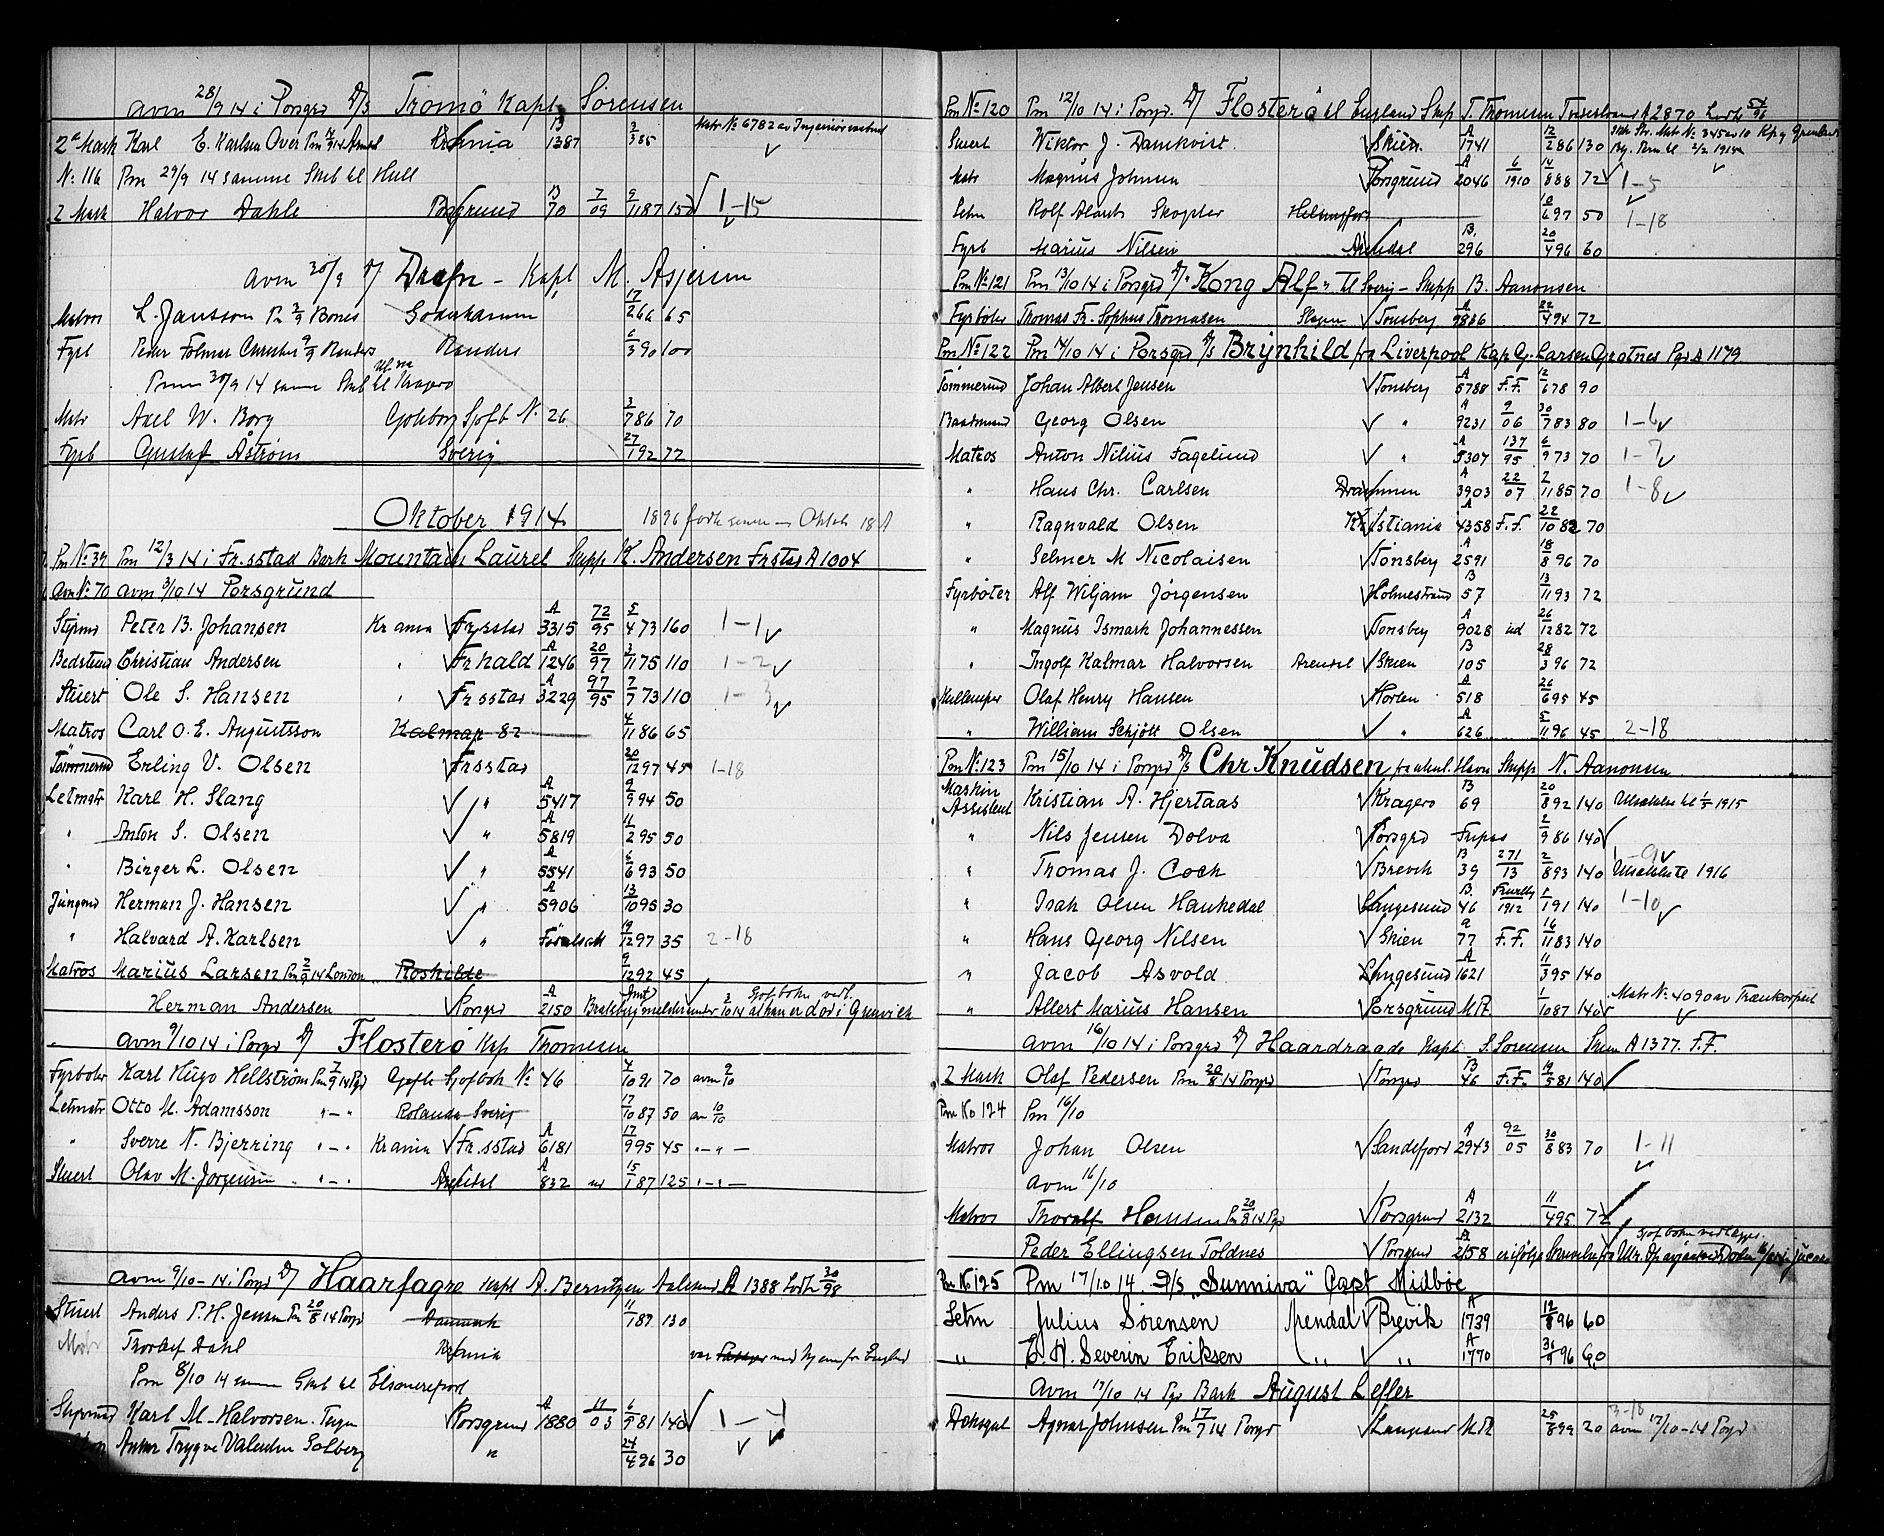 avm 28/9 14 i Porsgrd D/S Tromö Kapt. Sörensen
2de Mask Karl E. Karlsen Over Pm 14 Arendal Krania B 1387 3/3 85 Matr No 6782 av
No 116 Pm 29/9 14 samme Skib til Hull
2 Mask Halvor Dahle Porsgrund B 70 7/09 9/11 87 150 1-15
avm 30/9 D/ Drafn - Kapt M. Asjersen
Matros L. Jansson 17/2 66 65
Fyrb Peder Folmar Randers 6/3 90 100
Pmm 30/9 14 samme Skib til Kragerø
Matr Axel W. Borg Goteborg Sjöfb No 26 3/7 86 70
Fyrb Gustaf Aström Sverig 27/1 92 72
Oktober 1914
Pm No 39 Pm 12/3 14 i Fr.sstad Bark Mountain Laurel Skipp K. Andersen Frstad A 1004
Avm No 70 avm 3/10 14 Porsgrund
Styrmd Peter B. Johansen Krania Fr.sstad A 3315 72/95 5/4 73 160 1-1
Bedstmd Christian Andersen " Fr.hald A 1246 20/97 3/11 75 110 1-2
Stuert Ole S. Hansen " Fr.sstad A 3229 97/95 7/7 73 110 1-3
Matros Carl O. E. Augustsson Kalmar 82 4/11 86 65
Tømmermd Erling V. Olsen Frsstad 20/12 97 45 1-18
Letmatr Karl H. Slang " A 5417 9/9 94 50
" Anton S. Olsen " A 5819 11/2 95 50
" Birger L. Olsen " A 5541 6/6 93 50
Jungmd Herman J. Hansen " A 5906 13/10 95 30
" Halvard A. Karlsen " 19/12 97 35 2-18
Matros Marius Larsen Pm 2/9 14 London Roskilde 9/12 92 45
Herman Andersen Porsgrd A 2150 Bratsberg Amt melder under 3/10 14 at han er død i Greenwich Sjøfboken vedl.
avm 9/10 14 i Porgr D/ Flosterö Kap Thomesen
Fyrboter Karl Hugo Hellström Pm 7/9 14 Pgd Gefle Sjofbok No 46 4/10 91 70 avm 9/10
Letmatr Otto M. Adamsson " - " Sverig 17/10 87 50 av 10/10
" Sverre N. Bjerring " - " Krania Fr.sstad A 6181 17/9 95 45 " - " -
Stuert Olav M. Jorgensen " - " Arendal A 832 15/1 87 125 " - " -
avm 9/10 - 14 i Porgr D/ Haarfagre Kapt A. Berntzen Aalesund A 1388 Lodh 30/98
Stuert Anders P. H. Jensen Pm 20/8 14 Porgr Danmark 11/1 87 130
Matr Thorleif Dahl Krania var med hjem fra England
Pm 8/10 14 samme Skib til
Styrmd Karl M. Halvorsen Porsgrund A 1880 11/03 6/9 81 140 1-4
Anker Trygve Valentin Solberg " 24/4 96 30
Pm No 120 Pm 12/10 14 i Porgr. D/ Flosterö til England Skip T. Thomesen Tvedestrand A 2870 Lodh 54/96
Stuert Wiktor J. Damkvist. Skien A 1741 12/2 86 130
Matr Magnus Johnsen Porsgrund A 2046 6/1910 14/8 88 72 1-5
Letm Rolf Skogster Helsingfors 10/6 97 50 1-18
Fyrb Marius Nilsen Arendal B. 296 20/4 96 60
Pm No 121 Pm 13/10 14 i Porsgrd D/S "Kong Alf" til Sverig - Skipp B. Aanonsen
Fyrböter Thomas Fr. Sophus Thomasen Slagen Tonsberg A 9836 22/4 94 72
Pm No 122 Pm 14/10 14 i Porsgrd D/S Brynhild fra Liverpool Kap G. Larsen Grotnes Pgr A 1179
Tømmermd Johan Albert Jensen Tonsberg A 5788 F.F. 12/6 78 90
Baadsmand Georg Olsen " A 9231 9/06 30/7 83 80 1-6
Matros Anton Nilius Fagelund " A 5307 137/95 6/9 73 70 1-7
" Hans Chr. Carlsen Drammen A 3903 22/07 2/11 85 70 1-8
" Ragnvald Olsen Kristiania A 4358 F.F. 22/10 82 70
" Selmer M Nicolaisen Tonsberg A 2591 18/8 96 70
Fyrböter Alf Wiljam Jörgensen Holmestrand B 57 13/11 93 72
" Magnus Ismark Johannessen Tonsberg A 9028 ud 26/12 82 72
" Ingolf Kalmar Halvorsen Arendal Skien B 105 28/3 96 72
Kullemper Olaf Henry Hansen Horten A 518 26/6 95 45
" William Schjött Olsen " A 626 5/11 96 45 2-18
Pm No 123 Pm 15/10 14 i Porgr D/S Chr Knudsen fra Skipp N. Aanonsen
Maskin Assistent Kristian A. Hjertaas Kragerø B 69 20/8 92 140 Utsettelse til 1/5 1915
" Nils Jensen Dolva Porsgrd Fripas 2/9 86 140
" Thomas J. Coch Brevik B 39 271/13 2/8 93 140 1-9 Utsettelse til 1916
" Isak Olsen Haukedal Langesund B. 46 1912 1/1 91 140 1-10
" Hans Georg Nilsen Skien 77 F.F. 16/11 83 140
" Jacob Asvold Langesund A 1621 11/3 95 140
" Albert Marius Hansen Porsgrund M.R. 1/10 87 140 Matr No 4090 av Trænkorpset
avm 16/10 14 i Porsgrd D/ Haardraade Kapt S. Sorensen Skien A 1377. F.F.
2 Mask Olaf Pedersen Pm 20/8 14 Porgr Porsgr B 46 F.F. 19/5 81 140
Pm No 124 Pm 16/10
Matros Johan Olsen Sandefjord A 2943 92/05 30/8 83 70 1-11
avm 16/10
Matros Thoralf Hansen Pm 20/8 14 Pgr Porsgrund A 2132 11/4 95 72
Peder Ellingsen Toldnes Porsgrund A 2158 Sjofboken vedlegges.
Pm No 125 Pm 17/10 14. D/S "Sunniva" Capt Midböe
Letm Julius Sörensen Arendal Brevik A 1739 12/8 96 60
" E. H. Severin Eriksen " " A 1770 30/9 96 60
avm 17/10 14 Pgr Bark August Leffler
Dæksgut Agnar Johnsen Pm 17/7 14 Porgr Langesund M.R. 25/8 99 20 3-18 avm 17/10 - 14 Porgr